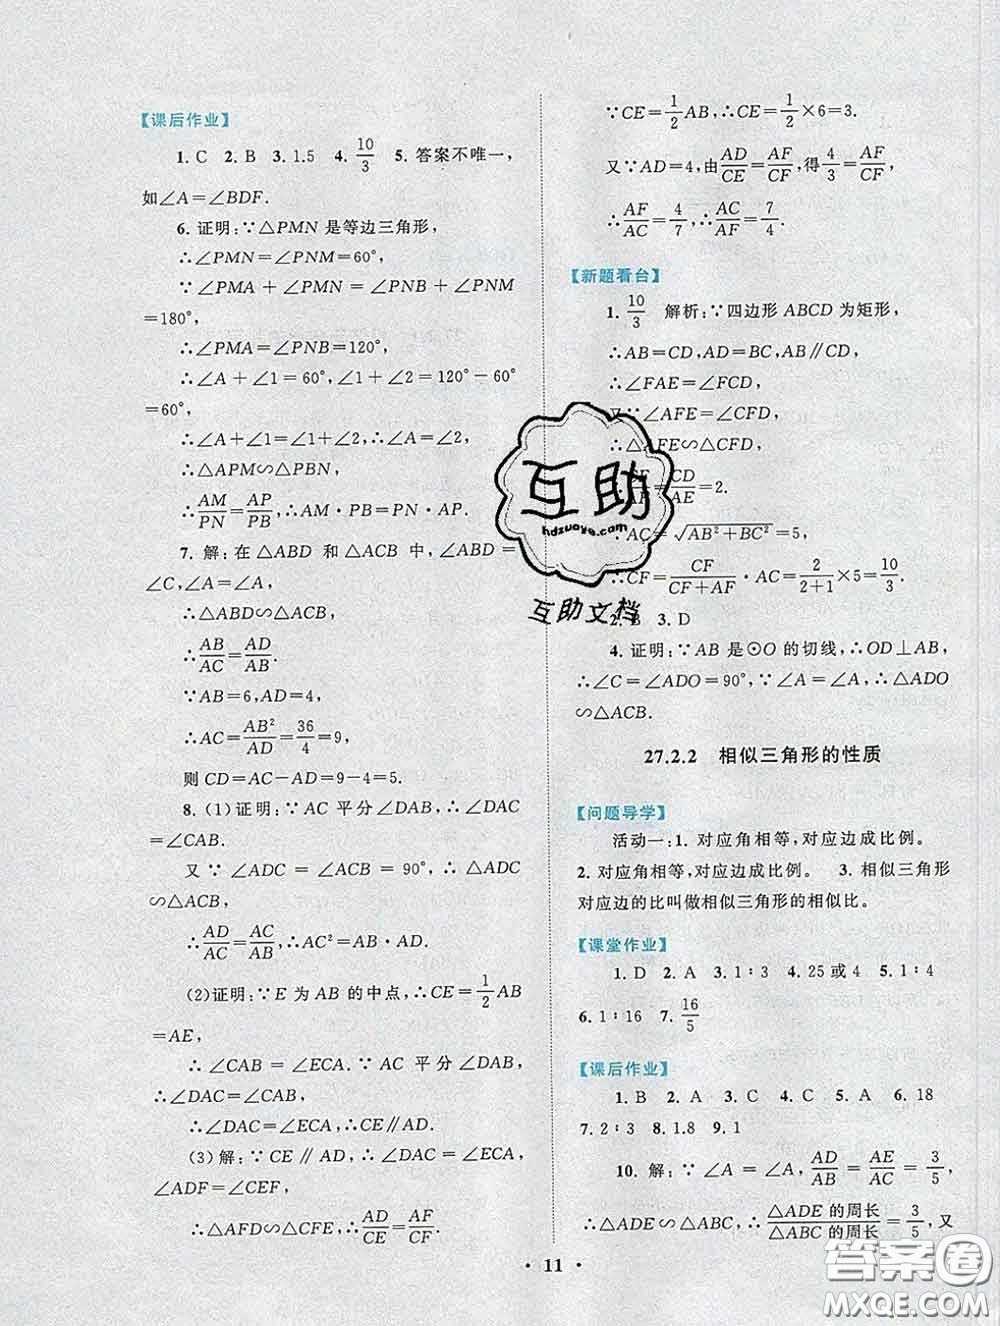 【课后作业】
1. C  2. B  3. 1.5  4. 10/3  5. 答案不唯一，
如∠A＝∠BDF.
6. 证明:∵△PMN 是等边三角形，
∴∠PMN＝∠PNM＝60°，
∴∠PMA＋∠PMN＝∠PNB＋∠PNM
＝180°，
∴∠PMA＝∠PNB＝120°，
∴∠A＋∠1＝60°，∠1＋∠2＝120°－60°
＝60°，
∴∠A＋∠1＝∠1＋∠2，∴∠A＝∠2，
∴△APM∽△PBN，
∴AM/PN＝AP/PB，∴AM·PB＝PN·AP.
7. 解:在△ABD 和△ACB 中，∠ABD＝
∠C，∠A＝∠A，
∴△ABD∽△ACB，
∴AB/AC＝AD/AB.
∵AB＝6，AD＝4，
∴AC＝AB²/AD＝36/4＝9，
则 CD＝AC－AD＝9－4＝5.
8. (1)证明:∵AC 平分∠DAB，∴∠DAC
＝∠CAB.
又∵∠ADC＝∠ACB＝90°，∴△ADC
∽△ACB，
∴AD/AC＝AC/AB，∴AC²＝AB·AD.
(2)证明:∵E 为 AB 的中点，∴CE＝1/2AB
＝AE，
∴∠CAB＝∠ECA.∵AC 平分∠DAB，
∴∠DAC＝∠CAB，
∴∠DAC＝∠ECA，∴CE∥AD.
(3)解:∵CE∥AD，∴∠DAC＝∠ECA，
∠ADF＝∠CEF，
∴△AFD∽△CFE，∴AD/CE＝AF/CF.
∵CE＝1/2AB，∴CE＝1/2×6＝3.
又∵AD＝4，由AD/CE＝AF/CF，得4/3＝AF/CF，
∴AF/AC＝4/7，∴AC/AF＝7/4.
【新题看台】
1. 10/3  解析:∵四边形 ABCD 为矩形，
∴AB＝CD，AD＝BC，AB∥CD，
∴∠FAE＝∠FCD，
又∵∠AFE＝∠CFD，
FE∽△CFD，
＝CD/AE＝2.
∵AC＝√(AB²＋BC²)＝5，
∴CF＝CF/(CF＋AF)·AC＝2/(2＋1)×5＝10/3.
2. B  3. D
4. 证明:∵AB 是⊙O 的切线，∴OD⊥AB，
∴∠C＝∠ADO＝90°，∵∠A＝∠A，∴△ADO
∽△ACB.
27.2.2  相似三角形的性质
【问题导学】
活动一:1. 对应角相等，对应边成比例。
2. 对应角相等，对应边成比例。  3. 相似三角形
对应边的比叫做相似三角形的相似比。
【课堂作业】
1. D  2. A  3. 1∶3  4. 25或4  5. 1∶4
6. 1∶16  7. 16/5
【课后作业】
1. B  2. A  3. C  4. C  5. A  6. 18
7. 2∶3  8. 1.8  9. 1
10. 解:∵∠A＝∠A，AD/AB＝AE/AC＝3/5，
∴△ADE∽△ABC，∴△ADE的周长/△ABC的周长＝3/5，又
· 11 ·
互助
hdzuoye.com
互助文档
答案圈
MXQE.COM